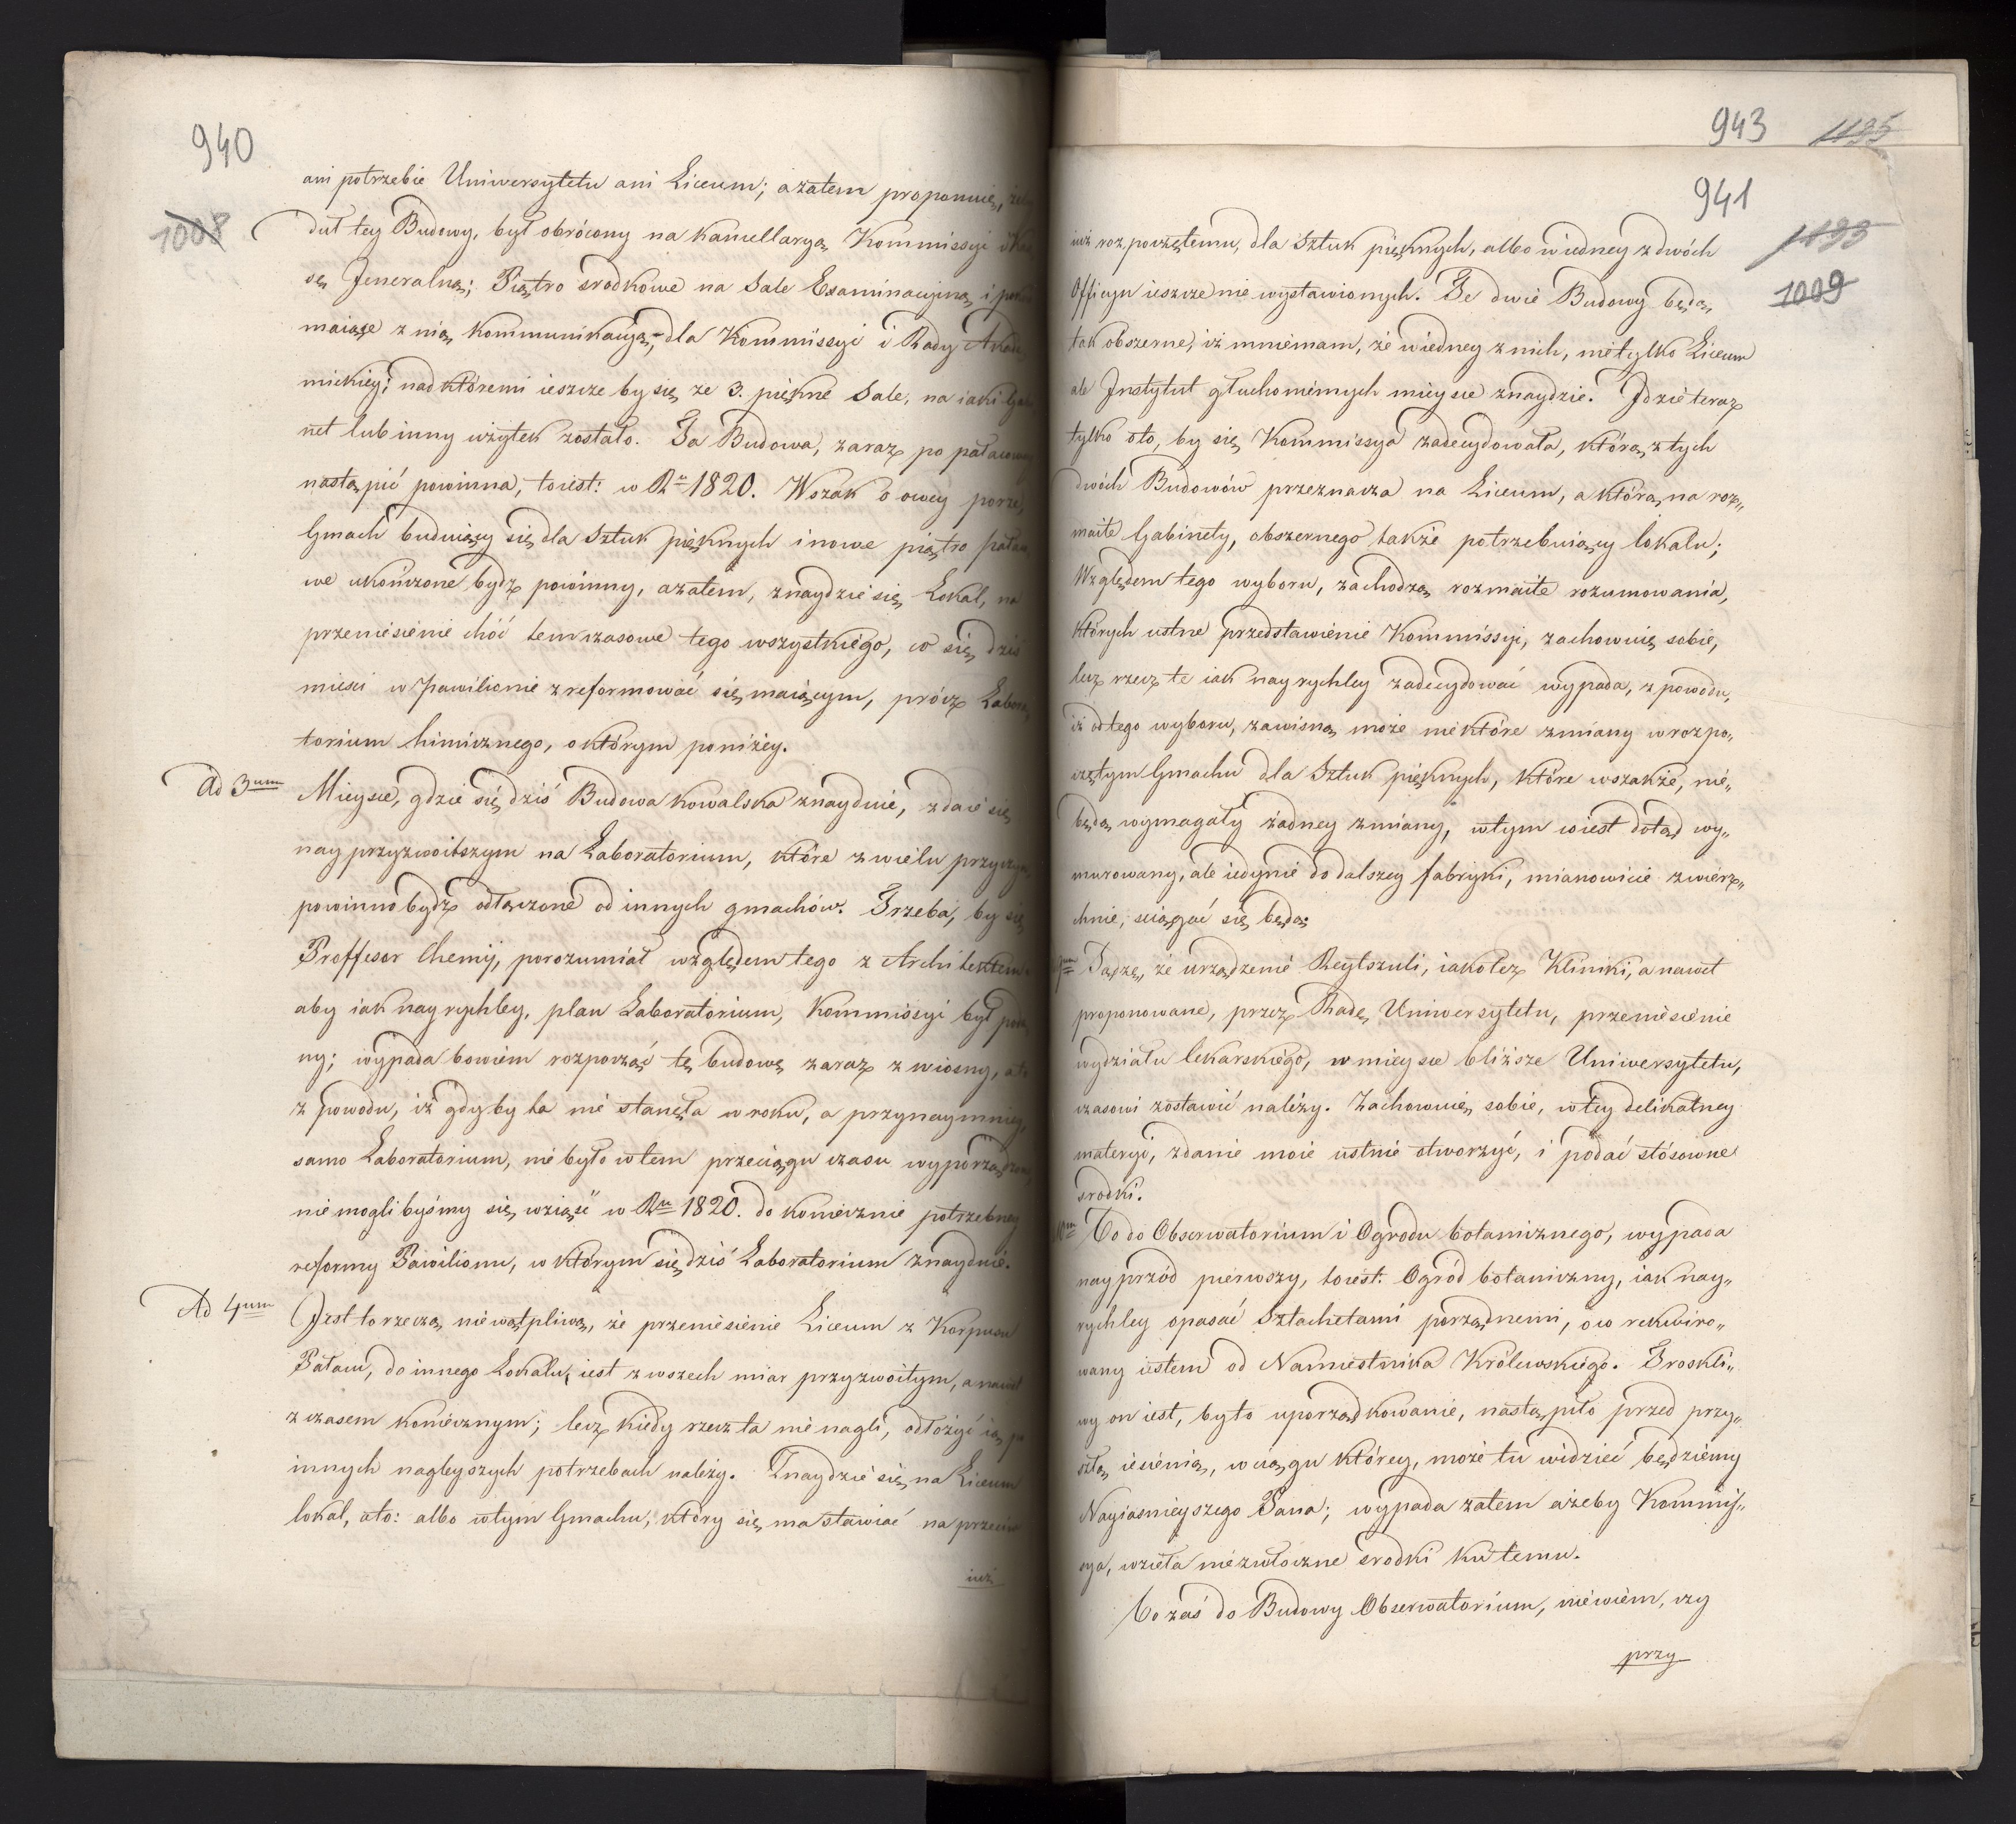 940
1008
ani potrzebie Uniwersytetu ani Liceum; azatem proponuię,
duł tey Budowy, był obrócony na kancellaryą Kommissyi
sę Jeneralną; Piątro srodkowe na Sale Examinacyiną i
maiące z nią kommunikacyą, dla Kommissyi i Rady
mickiey; nad któremi ieszcze by się ze 3. piękne Sale, na iaki
net lub inny użytek zostało. Ta Budowa, zaraz po pałacowey
nastąpić powinna, toiest: w Ru 1820. Wszak o owey porze,
Gmach buduiący się dla Sztuk pięknych i nowe piątro
we ukończone bydź powinny, azatem, znaydzie się Lokal, na
przeniesienie choć temczasowe tego wszystkiego, co się dziś
miesci w Pawilionie zreformować się maiącym, prócz Labora„
torium himicznego, o którym poniżey.
Ad 3um Mieysce, gdzie się dziś Budowa kowalska znayduie, zdaie się
nayprzyzwoitszym na Laboratorium, które z wielu przyczyn,
powinno bydź odłączone od innych gmachów. Trzeba, by się
Proffesor Chemij, porozumiał względem tego z Architektem
aby iak nayrychley, plan Laboratorium, Kommissyi był
ny; wypada bowiem rozpocząć tę budowę zaraz z wiosny, a to
z powodu, iż gdyby ta nie stanęła w roku, a przynaymniey,
samo Laboratorium, nie było w tem przeciągu czasu wyporządzone,
nie moglibyśmy się wziąść w Ru 1820. do koniecznie potrzebney
reformy Pawilionu, w którym się dziś Laboratorium znayduie.
Ad 4um Jest to rzeczą niewątpliwą, że przeniesienie Liceum z Korpusu
Pałacu, do innego Lokalu, iest z wszech miar przyzwoitym, a nawet
z czasem koniecznym; lecz kiedy rzecz ta nie nagli, odłożyć ią po
innych nagleyszych potrzebach należy. Znaydzie się na Liceum
lokal, ato: albo w tym Gmachu, który się ma stawiać na przeciw
iuż
943 1135
941
1133
1009
iuż rozpoczętemu, dla Sztuk pięknych, albo w iedney z dwóch
Officyn ieszcze nie wystawionych. Te dwie Budowy będą
tak obszerne, iż mniemam, że w iedney z nich, nietylko Liceum
ale Instytut głuchoniemych mieysce znaydzie. Idzie teraz
tylko oto, by się Kommissya zadecydowała, którą z tych
dwóch Budowów przeznacza na Liceum, a którą na roz„
maite Gabinety, obszernego także potrzebuiący lokalu;
Względem tego wyboru, zachodzą rozmaite rozumowania,
których ustne przedstawienie Kommissyi, zachowuię sobie,
lecz rzecz te iak nayrychley zadecydować wypada, z powodu,
iż od tego wyboru, zawisną może niektóre zmiany w rozpo„
czętym Gmachu dla Sztuk pięknych, które wszakże, nie„
będą wymagały żadney zmiany, w tym co iest dotąd wy„
murowany, ale iedynie do dalszey fabryki, mianowicie zwierz„
chnie, sciągać się będą.
Sądzę, że urządzenie Reytszuli, iako też Kliniki, a nawet
proponowane, przez Radę Uniwersytetu, przeniesienie
wydziału lekarskiego, w mieysce bliższe Uniwersytetu,
czasowi zostawić należy. Zachowuię sobie, w tey delikatney
materyi, zdanie moie ustnie otworzyć, i podać stósowne
srodki.
Co do Obserwatorium i Ogrodu botanicznego, wypada
nayprzód pierwszy, toiest: Ogród botaniczny, iak nay„
rychley opasać Sztachetami porządnemi, o co rekwiro„
wany iestem od Namiestnika Królewskiego. Troskli„
wy on iest, by to uporządkowanie, nastąpiło przed przy„
szłą iesienią, w ciągu którey, może tu widzieć będziemy
Nayiasnieyszego Pana; wypada zatem ażeby Kommis„
sya, wzieła niezwłoczne srodki ku temu.
Co zaś do Budowy Obserwatorium, niewiem, czy
przy